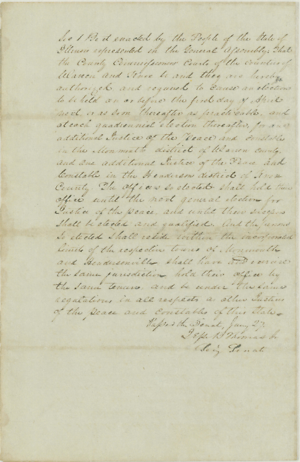 Sec 1 Be it enacted by the People of the State of
Illinois represented in the General Assembly, That
the County Commissioners Courts of the Counties of
Warren and Knox be and they are hereby
authorized and required to cause an election
to be held on or before the first day of April
next, or as soon thereafter as practicable, and
at each quadrennial election thereafter, for one
additional Justice of the Peace and Constable
in the Monmouth district of Warren County
and one additional Justice of the Peace and
Constable in the Henderson district of Knox
County The officers so elected shall hold their
office until the next general election for
Justices of the peace, and until their successors
shall be elected and qualified, but the
so elected shall reside within the incorporated
limits of the respective towns of Monmouth
and Hendersonville shall have and exercise
the same jurisdiction hold their offices by
the same tenure, and be under the same
regulations in all respects as other Justices
of the peace and Constables of this State.
Passed the Senate, Jany 27
B Thomas Jr
Secy Senate